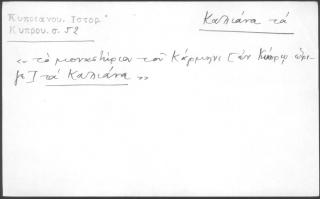 Καλιάνα τά
Κυπριανου. Ιστορ.
Κυπρου. σ. 52
« τὸ μοναστήριον τοῦ Κάρμηνι [ἐν Κύπρῳ
] τὰ Καλιάνα »